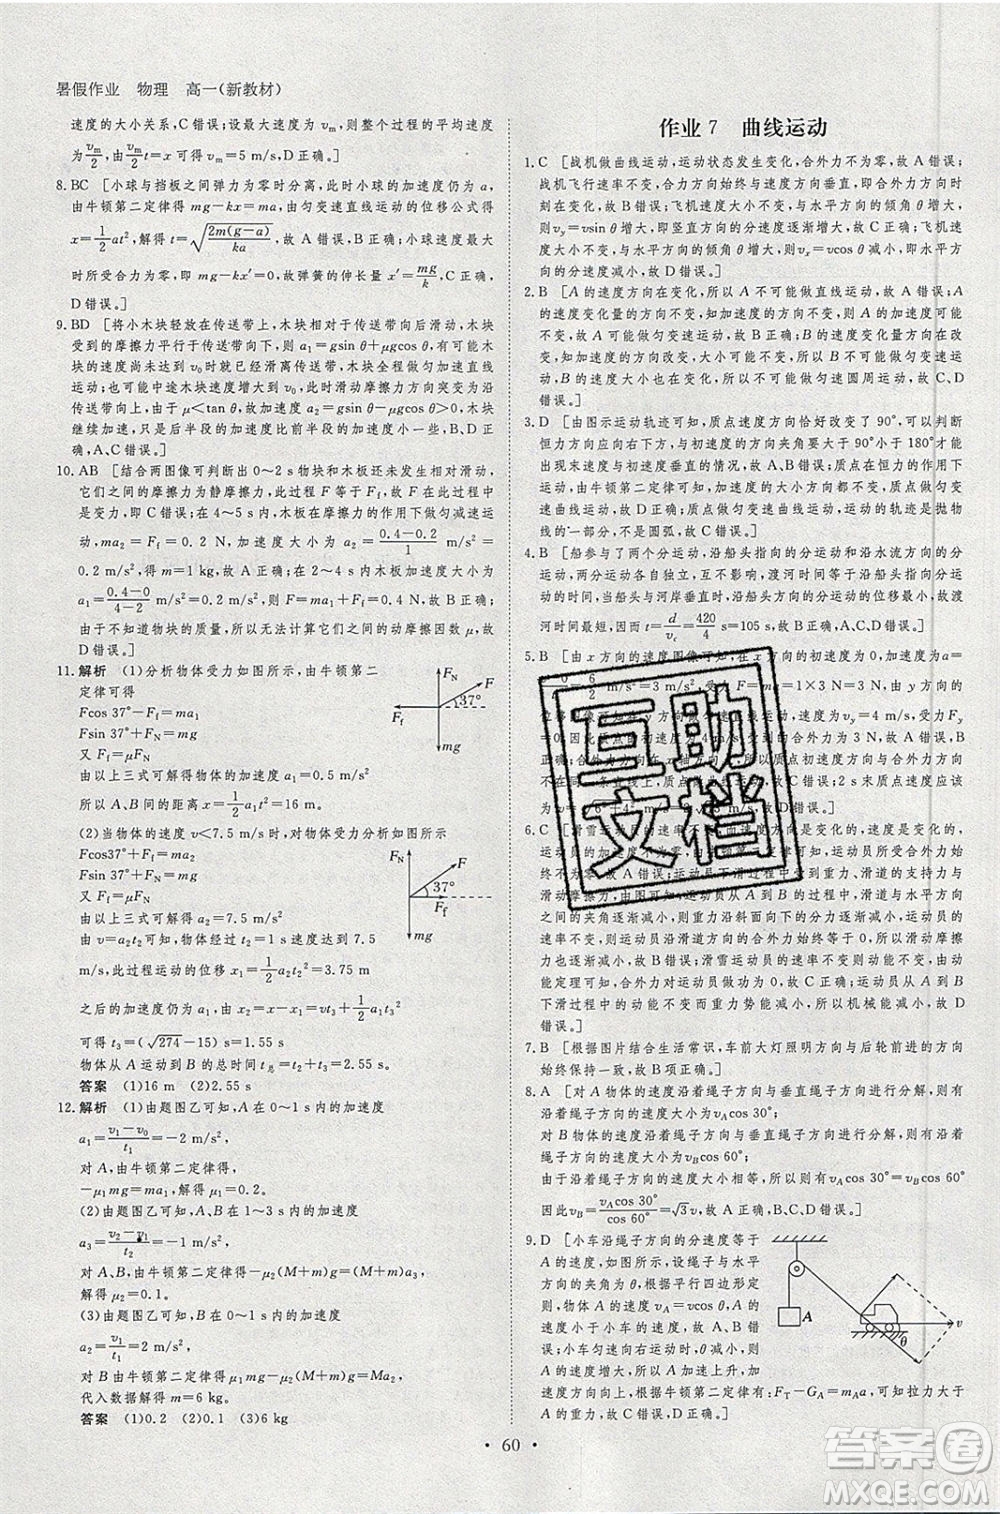 暑假作业 物理 高一(新教材)
速度的大小关系,C错误;设最大速度为vₘ,整个过程的平均速度
为vₘ/2,由vₘ/2 t=x可得vₘ=5 m/s,D正确。]
8.BC [小球与挡板之间弹力为零时分离,此时小球的加速度仍为a,
由牛顿第二定律得mg-kx=ma,由匀变速直线运动的位移公式得
x=1/2 at²,解得t=√(2m(g-a)/ka),故A错误,B正确;小球速度最大
时所受合力为零,即mg-kx′=0,故弹簧的伸长量x′=mg/k,C正确,
D错误。]
9.BD [将小木块轻放在传送带上,木块相对传送带向后滑动,木块
受到的摩擦力平行于传送带向下,加速度a₁=gsin θ+μgcos θ,有可能木块
的速度尚未达到v₀时就已经滑离传送带,木块全程做匀加速直线
运动;也可能中途木块速度增大到v₀,此时滑动摩擦力方向突变为沿
传送带向上,由于μ<tan θ,故加速度a₂=gsin θ-μgcos θ,木块
继续加速,只是后半段的加速度比前半段的加速度小,故B、D正
确,A、C错误。]
10.AB [结合两图像可判断出0~2 s物块和木板还未发生相对滑动,
它们之间的摩擦力为静摩擦力,此过程力F等于Ff,故F在此过程中
是变力,即C错误。在4~5 s内,木板在摩擦力的作用下做匀减速运
动,ma₂=Ff=0.2 N,加速度大小为a₂=(0.4-0.2)/1 m/s²=
0.2 m/s²,解得m=1 kg,故A正确;在2~4 s内木板的加速度
a₁=(0.4-0)/(4-2) m/s²=0.2 m/s²,所以F=Ff+ma₁=0.4 N,B正确;
由于不知道物块的质量,所以无法计算它们之间的动摩擦因数μ,
D错误。]
11.解析 (1)分析物体受力如图所示,由牛顿第二
定律可得
Fcos 37°-Ff=ma₁
Fsin 37°+FN=mg
又Ff=μFN
由以上三式可解得物体的加速度a₁=0.5 m/s²
所以A、B间的距离x=1/2 a₁t²=16 m。
(2)当物体的速度v<7.5 m/s时,对物体受力分析如图所示
Fcos37°+Ff=ma₂
Fsin 37°+FN=mg
又Ff=μFN
由以上三式可解得a₂=7.5 m/s²
由v=a₂t₂可得,物体经t₂=1 s速度达到7.5 m/s
此过程运动的位移x₁=1/2 a₂t₂²=3.75 m
之后的加速度仍为a₁,由x-x₁=vt₃+1/2 a₁t₃²
可得t₃=(√274-15) s=1.55 s
物体从A运动到B的总时间t总=t₂+t₃=2.55 s。
答案 (1)16 m (2)2.55 s
12.解析 (1)由题图乙可知,A在0~1 s内的加速度
a₁=(v₁-v₀)/t₁=-2 m/s²,
对A,由牛顿第二定律得
-μ₁mg=ma₁,解得μ₁=0.2。
(2)由题图乙可知,A、B在1~3 s内的加速度
a₃=(v₂-v₁)/t₂=-1 m/s²,
对A、B,由牛顿第二定律得-μ₂(M+m)g=(M+m)a₃,
解得μ₂=0.1。
(3)由题图乙可知,B在0~1 s内的加速度
a₂=v₁/t₁=2 m/s²,
对B由牛顿第二定律得μ₁mg-μ₂(M+m)g=Ma₂,
代入数据解得m=6 kg。
答案 (1)0.2 (2)0.1 (3)6 kg
FN
F
37°
Ff
mg
FN
F
37°
Ff
mg
作业7 曲线运动
1.C [战机做曲线运动,运动状态发生变化,合外力不为零,故A错误;
战机飞行速率不变,合力方向始终与速度方向垂直,即合外力方向
发生变化,故B错误;飞机速度大小不变,与水平方向的倾角θ增
大,则vy=vsin θ增大,即竖直方向的分速度逐渐增大,故C正确;飞机速
度大小不变,与水平方向的倾角θ增大,则vx=vcos θ减小,即水平
方向的分速度减小,故D错误。]
2.B [A的速度方向在变化,所以A不可能做直线运动,故A错误;A
的速度变化量等于B的速度变化量,B的速度变化量方向在改
变,所以A可能做匀变速运动,故B正确;A的速度变化量方向不
变,A可能做匀变速运动,不可能做匀速圆周运动,故C、D
错误。]
3.D [由图示运动轨迹可知,质点速度方向恰好改变了90°,可以判断
恒力方向应为右下方,与初速度的方向夹角要大于90°小于180°才能
出现末速度与初速度垂直的情况,故D正确,A、B错误;质点在恒
力作用下运动,由牛顿第二定律可知,加速度的大小方向都不变,
质点做匀变速曲线运动,加速度的方向不变,运动的轨迹是抛物
线的一部分,不是圆弧,故C错误。]
4.B [船参与了两个分运动,沿船头指向的分运动和沿水流方向的分
运动,船实际运动
船头与河岸垂直时,沿船头指向的分运动的分位移最小,故渡
河时间最短,因而t=d/vc=420/4 s=105 s,故B正确,A、C、D错误。]
5.B
m/s²=3 m/s²,受力Fx=ma=1×3 N=3 N,由y方向
运动,速度为vy=4 m/s,受力Fy
受到的合外力为3 N,B正
2 s末质点速度应该
为
6.C [滑雪运动员的速率不变,而速度方向是变化的,速度是变化的,
力的分力与滑动摩擦
力也逐渐增大,故C正确;
下滑过程中的动能不变而重力势能减小,所以机械能减小,故D
错误。]
7.B [根据图片结合生活常识,车前大灯照明方向与后轮前进方向
始终保持一致,故B正确。]
8.A [对A物体的速度沿着绳子方向与垂直绳子方向进行分解,则
有沿着绳子方向的速度大小为vAcos 30°;
对B物体的速度沿着绳子方向与垂直绳子方向进行分解,则有沿着
绳子方向的速度大小为vBcos 60°;
由于沿着绳子方向速度大小相等,所以则有vAcos 30°=vBcos 60°,
因此vB=vAcos 30°/cos 60°=√3v,故A正确,B、C、D错误。]
9.D [小车沿绳子方向的分速度等于
A的速度,设绳子与水平
方向的夹角为θ,根据平行四边形定
则,物体A的速度vA=vcos θ,故A、
B错误;小车匀速向右运动时,θ减
小,则A的速度增大,所以A加速上升,加
速度方向向上,根据牛顿第二定律有:FT-GA=mAa,可知拉力大于
A的重力,故C错误,D正确。]
A
v
θ
互助
文档
答案圈
60